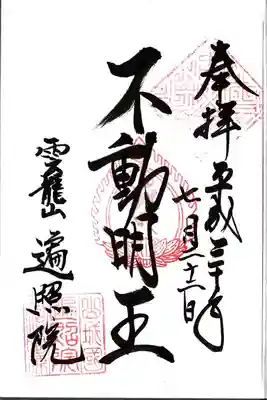 奉拝
平成三十年
七月 日
不動明王
雲龍山 遍照院